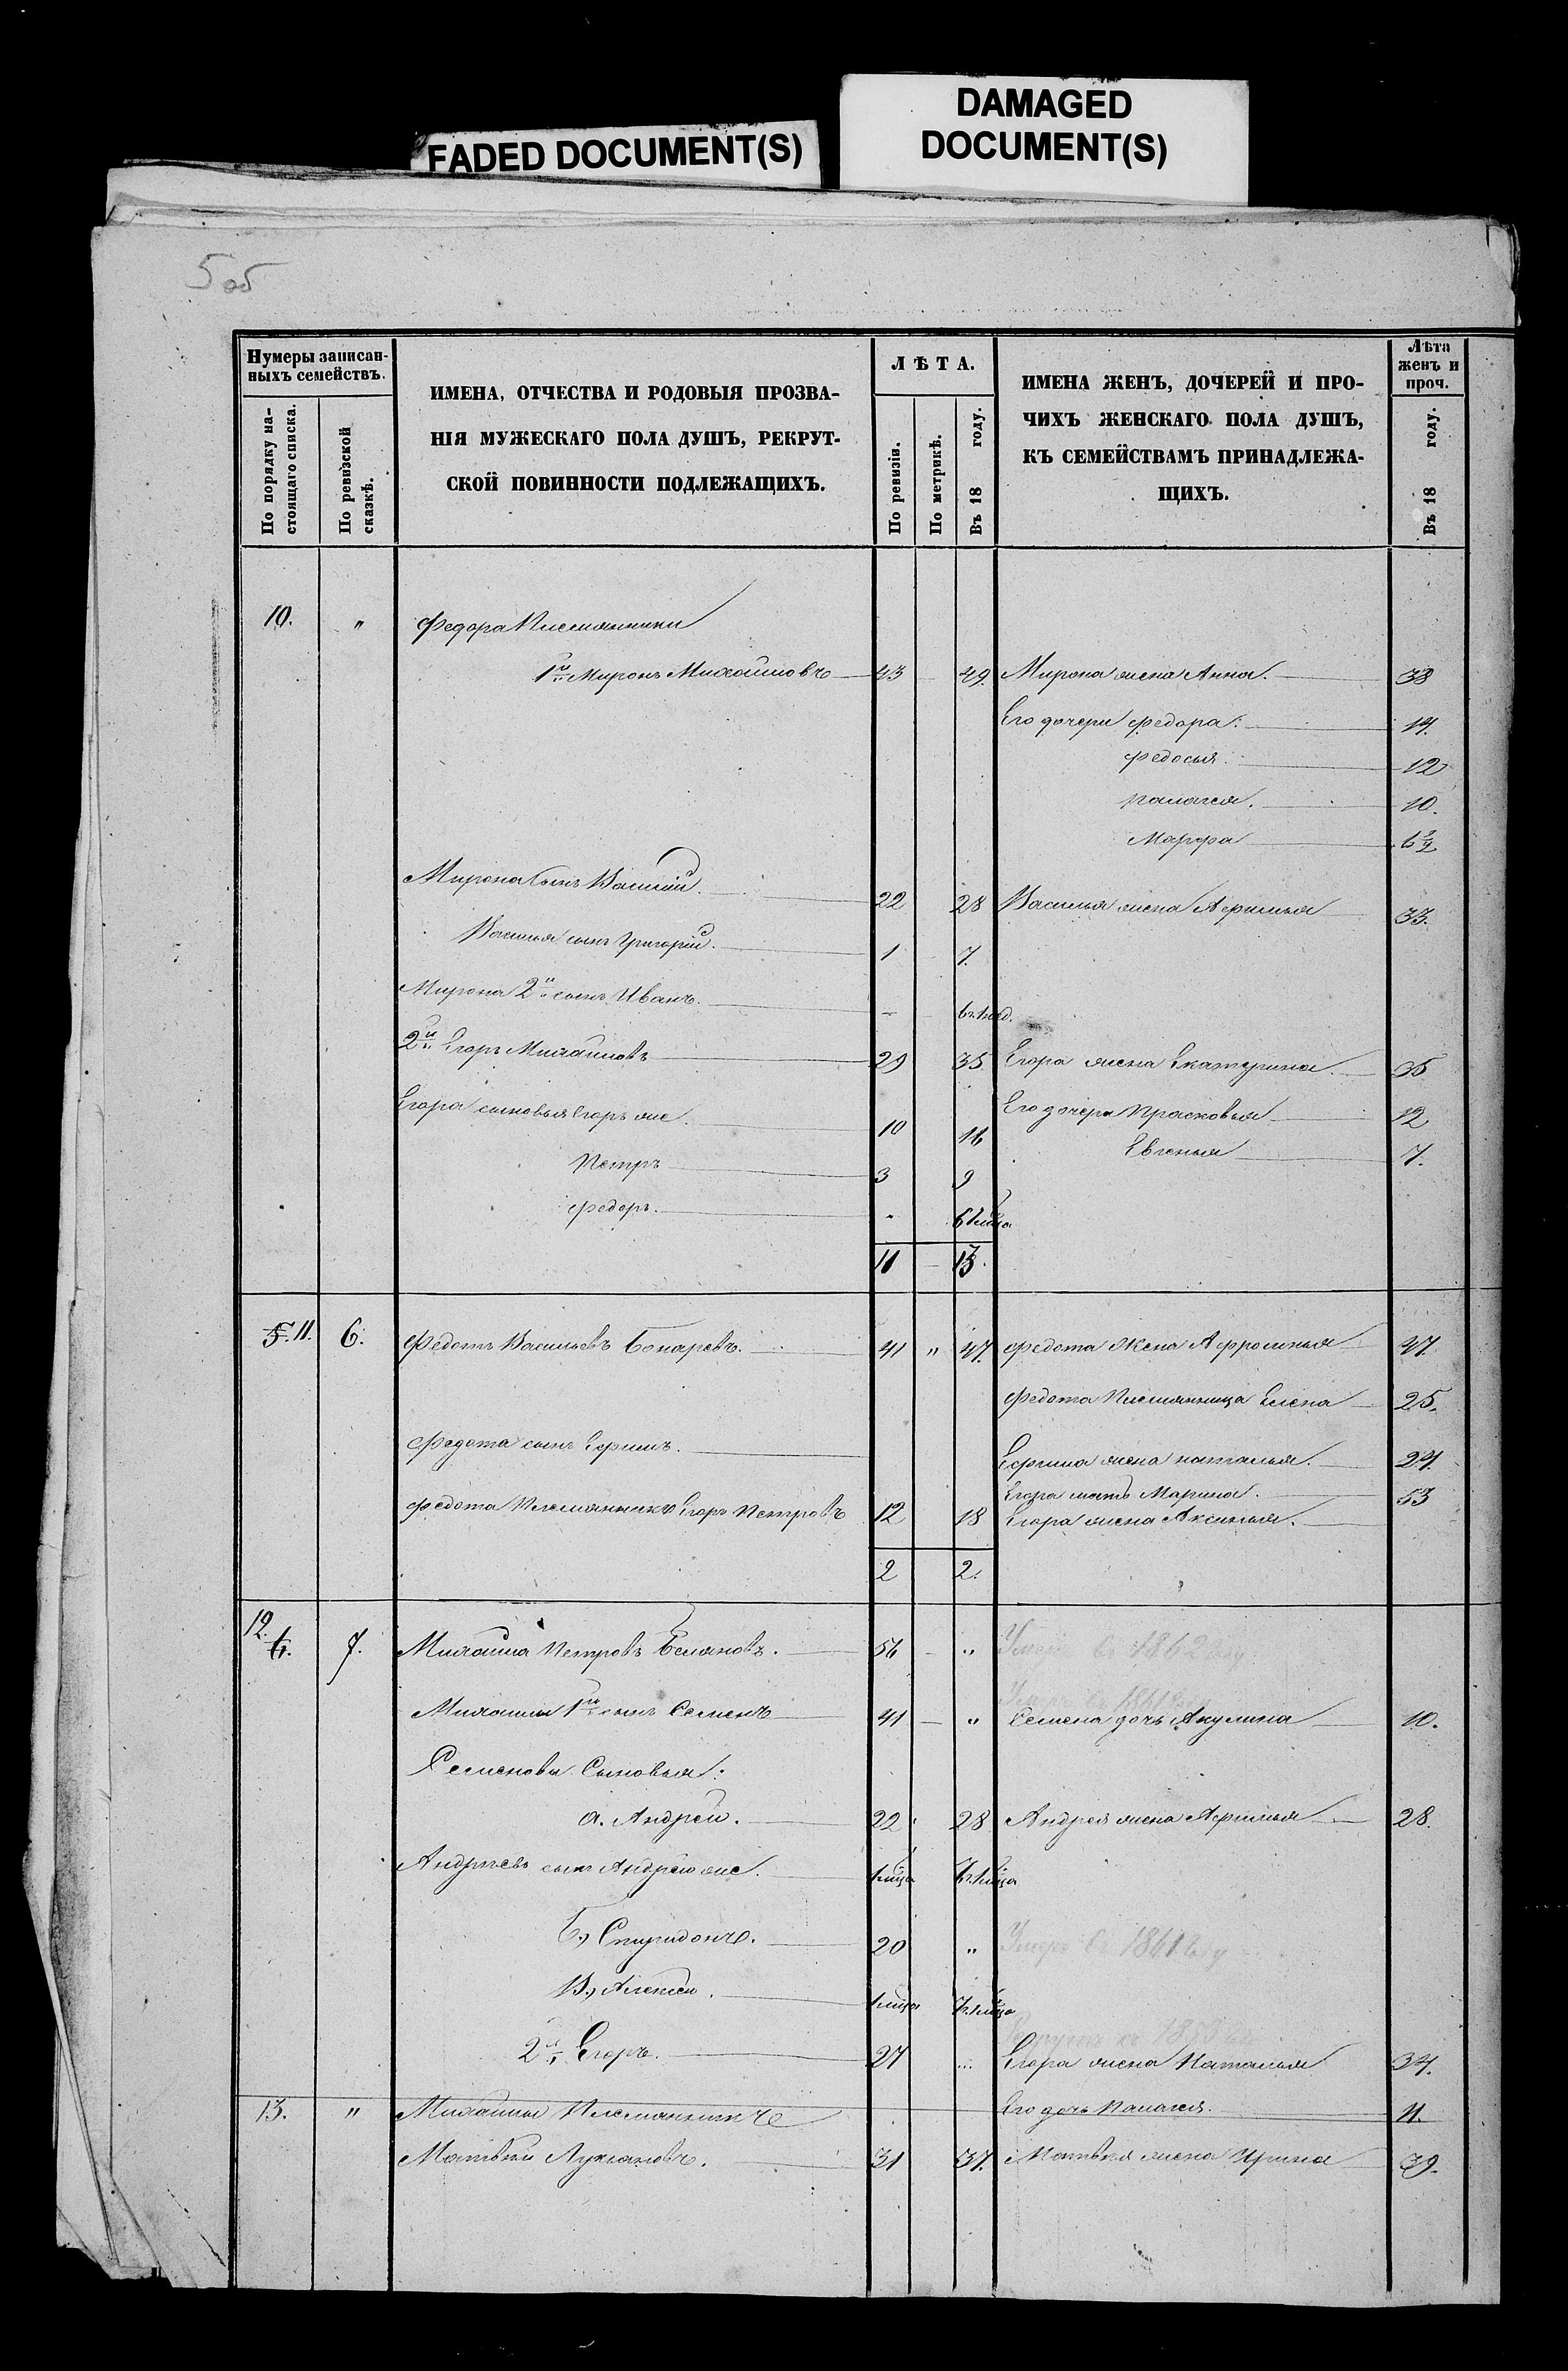 FADED DOCUMENT(S)
DAMAGED
DOCUMENT(S)
5 об
Нумеры записан-
ныхъ семействъ.
По порядку на-
стоящаго списка.
По ревизской
сказкѣ.
ИМЕНА, ОТЧЕСТВА И РОДОВЫЯ ПРОЗВА-
НІЯ МУЖЕСКАГО ПОЛА ДУШЪ, РЕКРУТ-
СКОЙ ПОВИННОСТИ ПОДЛЕЖАЩИХЪ.
ЛѢТА.
По ревизіи.
По метрикѣ.
Въ 18 году.
ИМЕНА ЖЕНЪ, ДОЧЕРЕЙ И ПРО-
ЧИХЪ ЖЕНСКАГО ПОЛА ДУШЪ,
КЪ СЕМЕЙСТВАМЪ ПРИНАДЛЕЖА-
ЩИХЪ.
Лѣта
женъ и
проч.
Въ 18 году.
10. " Федора Племянники
1й Миронъ Михайловъ 43 49. Мирона жена Анна. 38
Его дочери Федора: 14.
Федосья. 12
Палагея. 10.
Марфа 6½
Мирона сынъ Василій. 22 28 Василья жена Афимья 33.
Василья сынъ Григорій. 1 7.
Мирона 2й сынъ Иванъ. -
2й Егоръ Михайловъ 29 35 Егора жена Екатерина. 35
Егора сыновья Егоръ же. 10 16 Его дочери Прасковья 12
Евгенья 7.
Петръ 3 9
Федоръ. -
11 13.
5. 11. 6. Федотъ Васильевъ 41 " 47. Федота жена Афросинья 47.
Федота Племянница Елена 25.
Федота сынъ Ефимъ. Ефима жена Наталья. 24.
Егора мать Марина. 53
Федота Племянникъ Егоръ Петровъ 12 18 Егора жена Аксинья.
2 2.
12. 6. 7. Михайла Петровъ 56 " Умеръ въ 1862 году
Умеръ въ 1861 году
Михайлы 1й сынъ Семенъ 41 " Семена дочь Акулина 10.
Семеновы Сыновья:
а. Андрей. 22 28 Андрея жена Афимья 28.
Андреевъ сынъ Андрей же. 1 мѣца
Б.) Спиридонъ. 20 " Умеръ въ 1861 году
В.) Алексей. 1 мѣца
въ 1853
2й Егоръ. 27 ... Егора жена Наталья 34.
Его дочь Палагея. 11.
13. " Михайлы Племянникъ
Матвѣй Лукьяновъ. 31 37. Матвея жена Ирина 39.